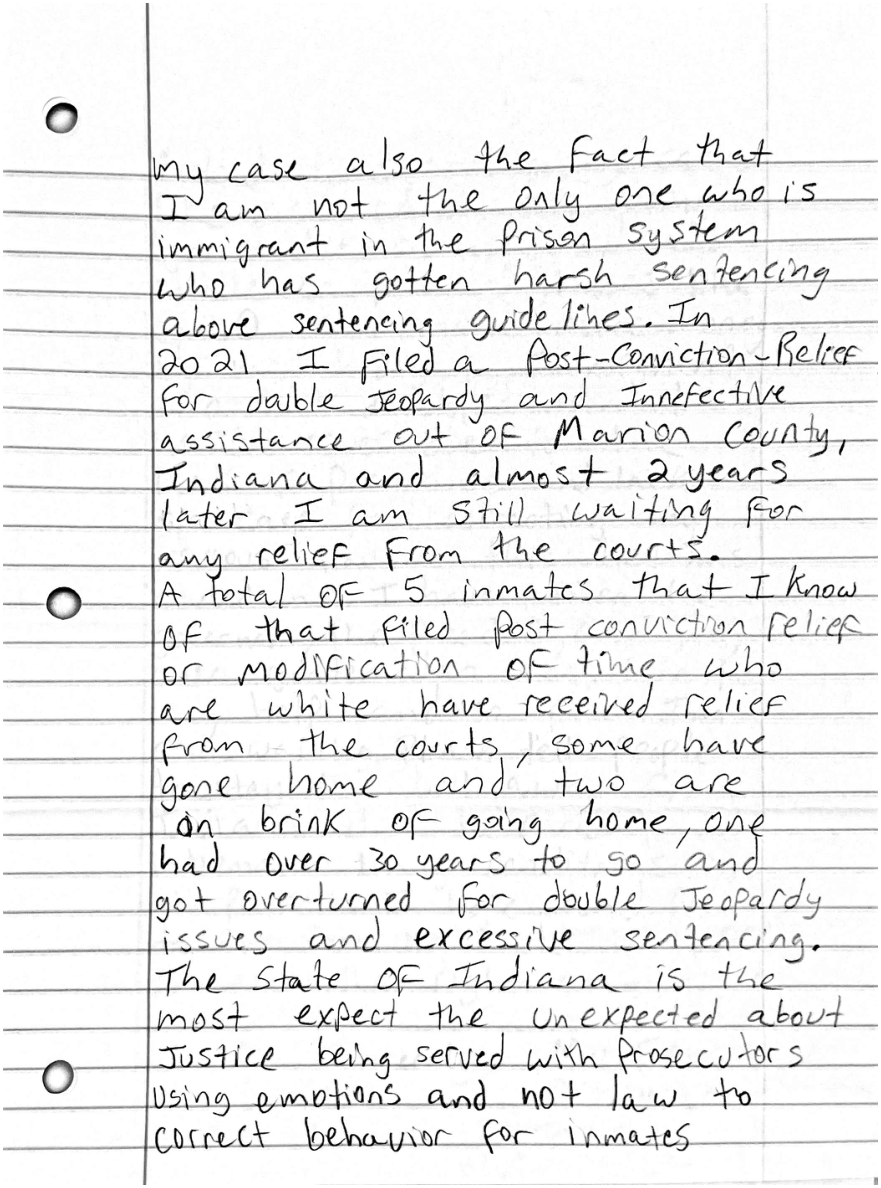 my case also the fact that
I am not the only one who is
immigrant in the Prison system
who has gotten harsh sentencing
above sentencing guidelines. In
2021 I Filed a Post-Conviction-Relief
for double Jeopardy and Innefective
assistance out of Marion County,
Indiana and almost 2 years
later I am still waiting for
any relief from the courts.
A total of 5 inmates that I know
of that filed post conviction relief
or modification of time who
are white have received relief
from the courts, some have
gone home and two are
on brink of going home, one
had over 30 years to go and
got overturned for double Jeopardy
issues and excessive sentencing.
The State of Indiana is the
most expect the unexpected about
Justice being served with Prosecutors
using emotions and not law to
correct behavior for inmates